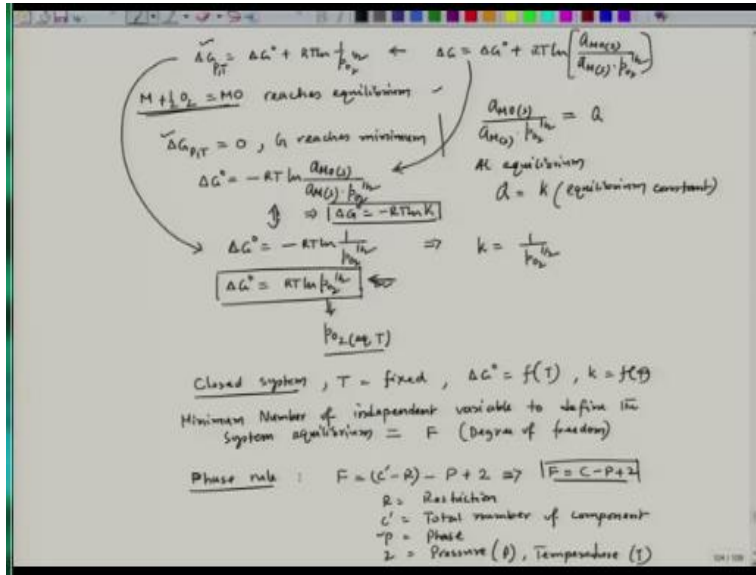 ΔG_{P,T} = ΔG° + RT ln 1/p_{O2}^{1/2} ← ΔG = ΔG° + RT ln [a_{MO(s)} / a_{M(s)} · p_{O2}^{1/2}]
M + ½O2 = MO reaches equilibrium
a_{MO(s)} / a_{M(s)} · p_{O2}^{1/2} = Q
ΔG_{P,T} = 0, G reaches minimum
At equilibrium
ΔG° = -RT ln a_{MO(s)} / a_{M(s)} · p_{O2}^{1/2}
Q = k (equilibrium constant)
⇕ ⇒ ΔG° = -RT ln K
ΔG° = -RT ln 1/p_{O2}^{1/2} ⇒ k = 1/p_{O2}^{1/2}
ΔG° = RT ln p_{O2}^{1/2}
p_{O2(eq,T)}
Closed system, T = fixed, ΔG° = f(T), k = f(T)
Minimum Number of independent variable to define the
system equilibrium = F (Degree of freedom)
Phase rule : F = (c' - R) - P + 2 ⇒ F = C - P + 2
R = Restriction
c' = Total number of component
P = Phase
2 = Pressure (P), Temperature (T)